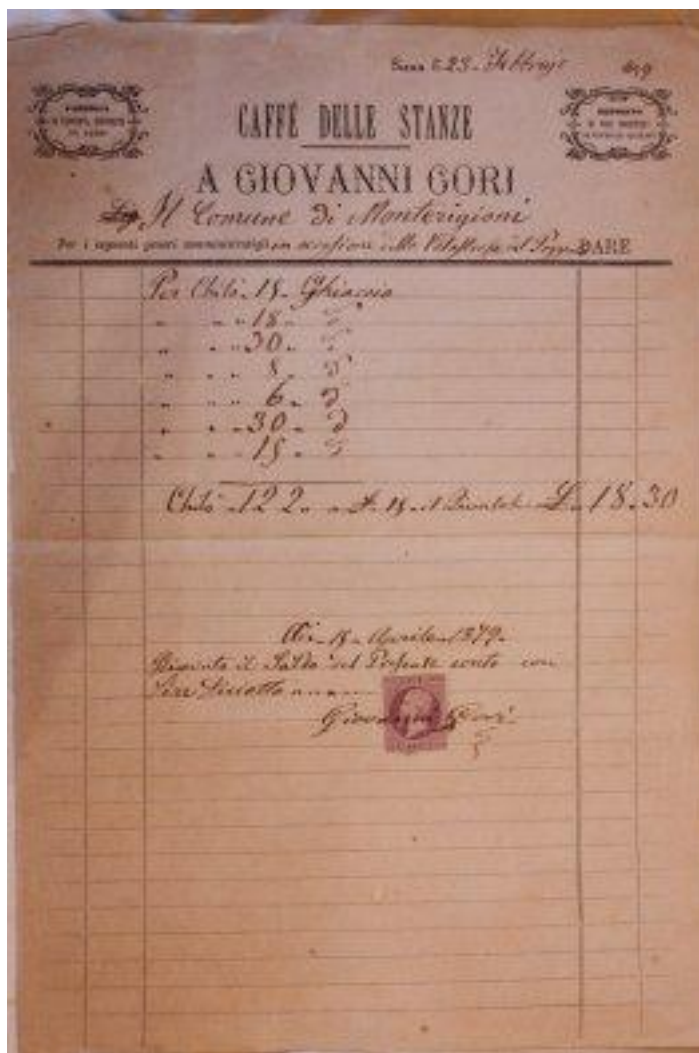 Siena li 23 Febbrajo 1879
CAFFÉ DELLE STANZE
DEPOSITO
A GIOVANNI GORI
Il Comune di Monterigioni
Per i seguenti generi somministratigli in occasione della DARE
Per Chilò 15 Ghiaccio
" " 18 " D
" " 30 " D
" " 8 " D
" " 6 " D
" " 30 " D
" " 15 " D
Chilò 122 " a 15 il L. 18.30
Adì 15 Aprile 1879
Ricevuto il Saldo del Presente conto con
Lire Diciotto
Giovanni Gori